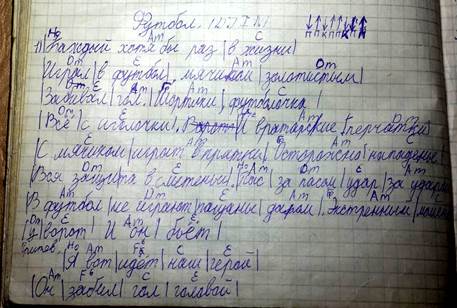 Футбол.
1) Каждый хотя бы раз | в жизни |
Играл | в футбол | мячиком | золотистым |
| Забивал | гол. | Шортики, футболочка |
| Всё | с иголочки |. И вратарские | перчатки
| С мячиком | играют в прятки. | Осторожно! нападенье
Вся защита в смятеньи. | Пас | за пасом | удар | за ударом
В футбол | не играют | пацаны | даром. | Экстренный | момент
| У | ворот | И он | бьёт |
Припев: | А вот | идёт | наш | герой |
| Он | забил | гол | головой |